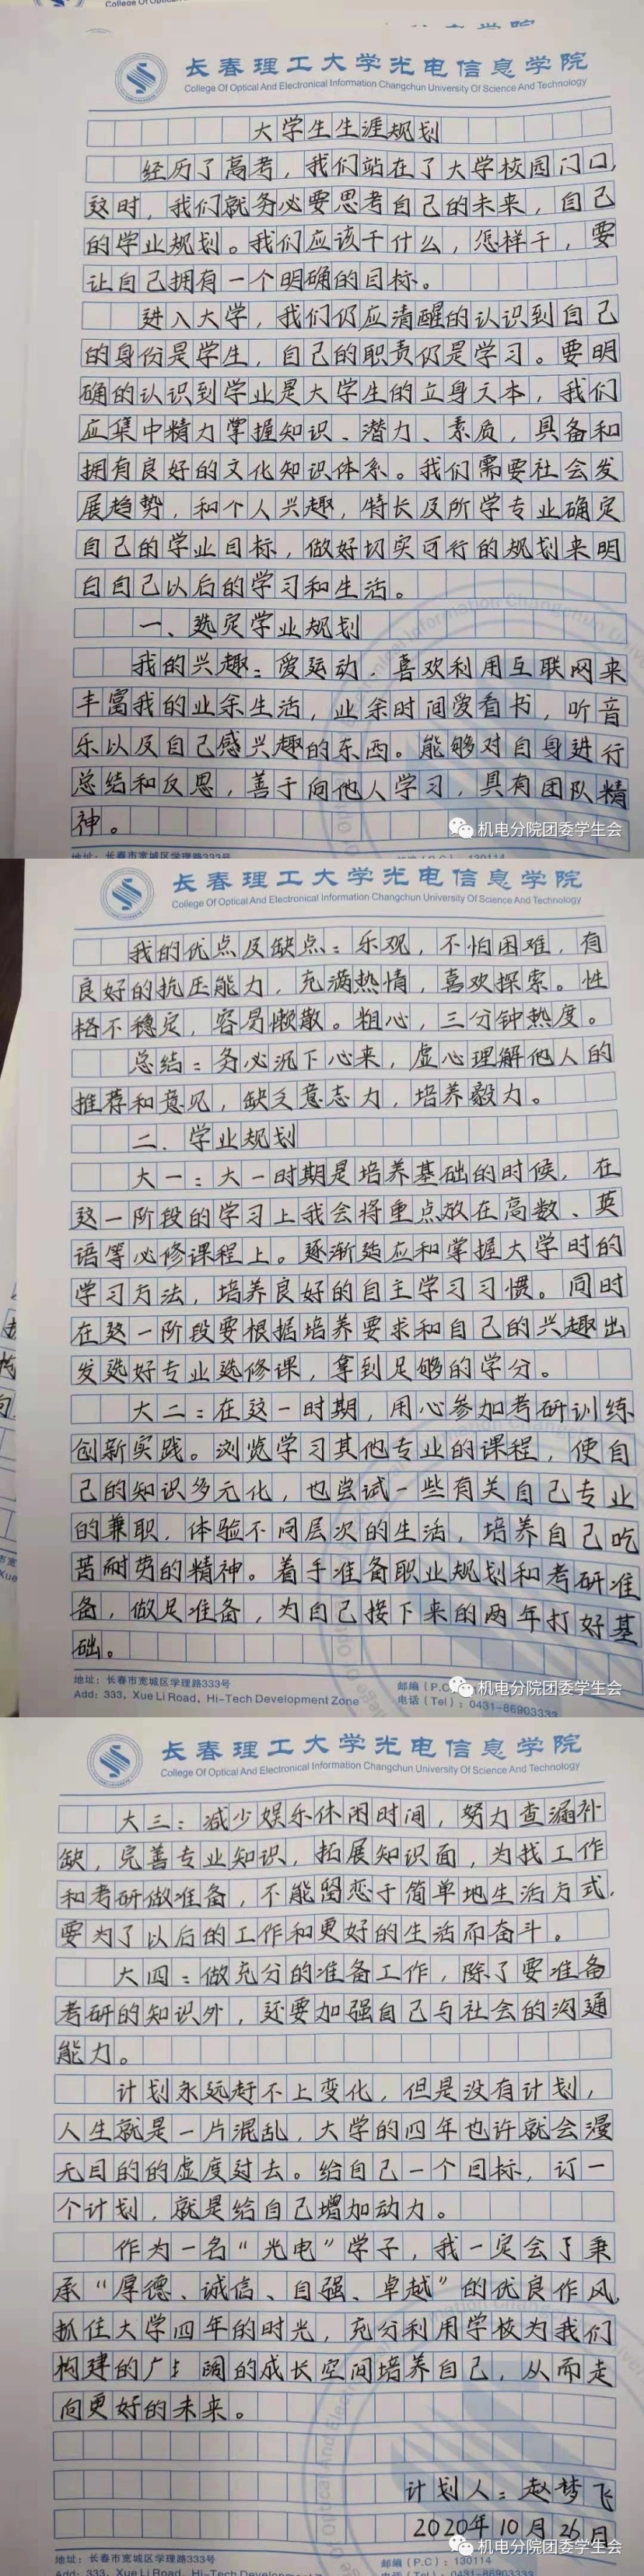 College Of Optical And Electronical
长春理工大学光电信息学院
College Of Optical And Electronical Information Changchun University Of Science And Technology
大学生生涯规划
经历了高考，我们站在了大学校园门口，
这时，我们就务必要思考自己的未来，自己
的学业规划。我们应该干什么，怎样干，要
让自己拥有一个明确的目标。
进入大学，我们仍应清醒的认识到自己
的身份是学生，自己的职责仍是学习。要明
确的认识到学业是大学生的立身之本，我们
应集中精力掌握知识、潜力、素质，具备和
拥有良好的文化知识体系。我们需要社会发
展趋势，和个人兴趣，特长及所学专业确定
自己的学业目标，做好切实可行的规划来明
白自己以后的学习和生活。
一、选定学业规划
我的兴趣：爱运动，喜欢利用互联网来
丰富我的业余生活，业余时间爱看书，听音
乐以及自己感兴趣的东西。能够对自身进行
总结和反思，善于向他人学习，具有团队精
神。
机电分院团委学生会
地址：长春市宽城区学理路333号
邮编（P.C）：130114
长春理工大学光电信息学院
College Of Optical And Electronical Information Changchun University Of Science And Technology
我的优点及缺点：乐观，不怕困难，有
良好的抗压能力，充满热情，喜欢探索。性
格不稳定，容易懒散。粗心，三分钟热度。
总结：务必沉下心来，虚心理解他人的
推荐和意见，缺乏意志力，培养毅力。
二、学业规划
大一：大一时期是培养基础的时候，在
这一阶段的学习上我会将重点放在高数、英
语等必修课程上。逐渐适应和掌握大学时的
学习方法，培养良好的自主学习习惯。同时
在这一阶段要根据培养要求和自己的兴趣出
发选好专业选修课，拿到足够的学分。
大二：在这一时期，用心参加考研训练
创新实践。浏览学习其他专业的课程，使自
己的知识多元化，也尝试一些有关自己专业
的兼职，体验不同层次的生活，培养自己吃
苦耐劳的精神。着手准备职业规划和考研准
备，做足准备，为自己接下来的两年打好基
础。
地址：长春市宽城区学理路333号
邮编（P.C
机电分院团委学生会
Add: 333, Xue Li Road, Hi-Tech Development Zone
电话（Tel）：0431-86903333
长春理工大学光电信息学院
College Of Optical And Electronical Information Changchun University Of Science And Technology
大三：减少娱乐休闲时间，努力查漏补
缺，完善专业知识，拓展知识面，为找工作
和考研做准备，不能留恋于简单地生活方式，
要为了以后的工作和更好的生活而奋斗。
大四：做充分的准备工作，除了要准备
考研的知识外，还要加强自己与社会的沟通
能力。
计划永远赶不上变化，但是没有计划，
人生就是一片混乱，大学的四年也许就会漫
无目的的虚度过去。给自己一个目标，订一
个计划，就是给自己增加动力。
作为一名“光电”学子，我一定会了秉
承“厚德、诚信、自强、卓越”的优良作风，
抓住大学四年的时光，充分利用学校为我们
构建的广阔的成长空间培养自己，从而走
向更好的未来。
计划人：赵梦飞
2020年10月26日
机电分院团委学生会
地址：长春市宽城区学理路333号
邮编（P.C）：130114
Add: 333, Xue Li Road, Hi-Tech Development
电话（Tel）：0431-86903333